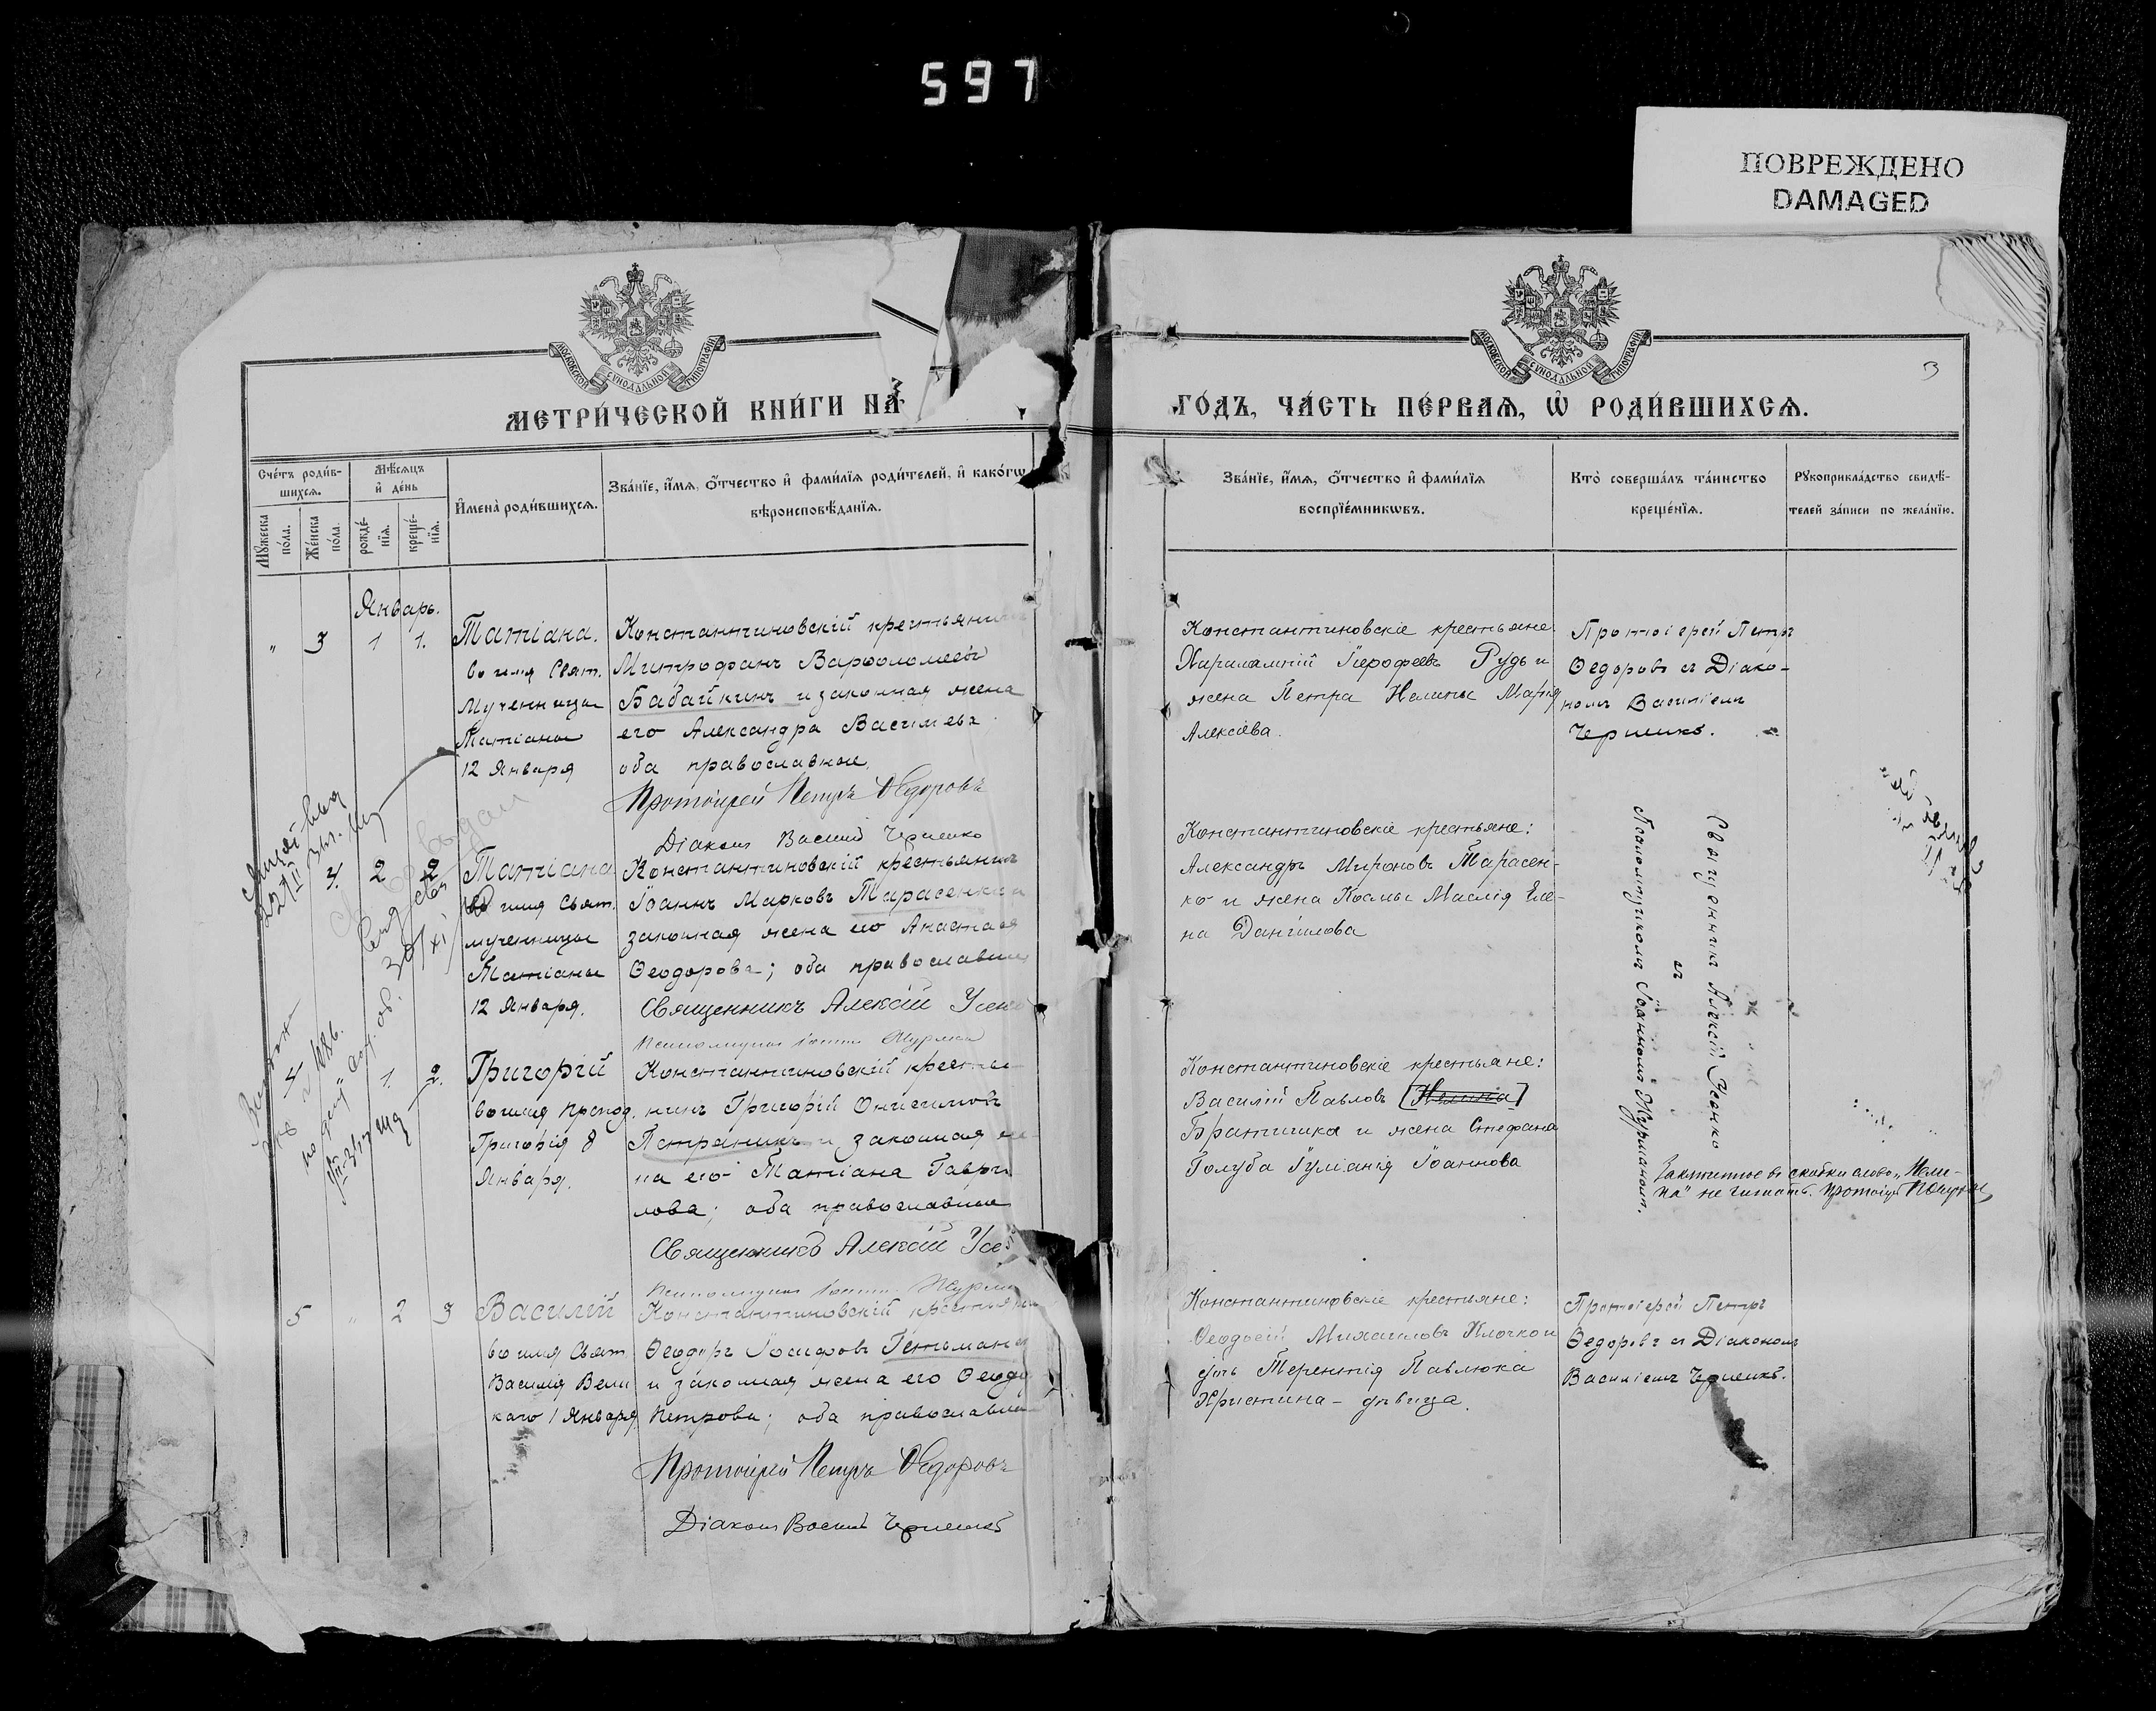 597
ПОВРЕЖДЕНО
DAMAGED
МОСКОВСКОЙ СѴНОДАЛЬНОЙ ТИПОГРАФІИ
МОСКОВСКОЙ СѴНОДАЛЬНОЙ ТИПОГРАФІИ
3
МЕТРИ́ЧЕСКОЙ КНИ́ГИ НА̀
ГО́ДЪ, ЧА́СТЬ ПЕ́РВАѦ, Ѡ҆ РОДИ́ВШИХСѦ.
Сче́тъ роди́в-
шихсѧ.
Мѣ́сѧцъ
и҆ де́нь
Мꙋ́жеска
по́ла.
Же́нска
по́ла.
рожде́-
нїѧ.
креще́-
нїѧ.
И҆мена̀ роди́вшихсѧ.
Зва́нїе, и҆́мѧ, ѻ҆́тчество и҆ фами́лїѧ роди́телей, и҆ како́гѡ
вѣроисповѣ́данїѧ.
Зва́нїе, и҆́мѧ, ѻ҆́тчество и҆ фами́лїѧ
воспрїе́мникѡвъ.
Кто̀ соверша́лъ та́инство
креще́нїѧ.
Рꙋкоприкла́дство свидѣ́-
телей за́писи по жела́нїю.
Январь.
" 3 1 1.
Татіана.
во имя Свят.
Мученицы
Татіаны
12 Января
Константиновскій крестьянинъ
Митрофанъ Варѳоломеевъ
Бабайкинъ и законная жена
его Александра Васильева.
оба православные.
Протоіерей Петръ Ѳедоровъ
Діаконъ Василій Черненко
Константиновскіе крестьяне
Харалампій Іероѳеевъ Рудь и
жена Петра Налины Марія
Алексіева.
Протоіерей Петръ
Ѳедоровъ съ Діако-
номъ Василіемъ
Черненко.
4. 2 2
Татіана
во имя Свят.
мученицы
Татіаны
12 Января.
Константиновскій крестьянинъ
Іоаннъ Марковъ Тарасенко и
законная жена его Анастасія
Ѳеодорова; оба православные
Священникъ Алексій Усенко
Псаломщикъ Іоаннъ Журманъ
Константиновскіе крестьяне:
Александръ Мироновъ Тарасен-
ко и жена Космы Маслія Еле-
на Даніилова
Священникъ Алексій Усенко
съ
Псаломщикомъ Іоанномъ Журманомъ.
4 1. 2.
Григорій
во имя препод.
Григорія 8
Января.
Константиновскій крестья-
нинъ Григорій Онисимовъ
Петраникъ и законная же-
на его Татіана Гаври-
лова; оба православные
Священникъ Алексій Усе
Псаломщикъ Іоаннъ Журма
Константиновскіе крестьяне:
Василій Павловъ [Нелина]
Братишка и жена Стефана
Голуба Іуліанія Іоаннова
Заключенное въ скобки слово „Нели-
на" не читать. Протоіерей
5 " 2 3
Василій
во имя Свят
Василія Вели
каго 1 Января
Константиновскій крестьянин
Ѳеодоръ Іосифовъ Гетьманъ
и законная жена его Ѳеодо
Петрова; оба православные
Протоіерей Петръ Ѳедоровъ
Діаконъ Василій Черненко
Константиновскіе крестьяне:
Ѳеодосій Михаиловъ Клочко и
дочь Терентія Павлюка
Христина - дѣвица.
Протоіерей Петръ
Ѳедоровъ съ Діакономъ
Василіемъ Черненко.